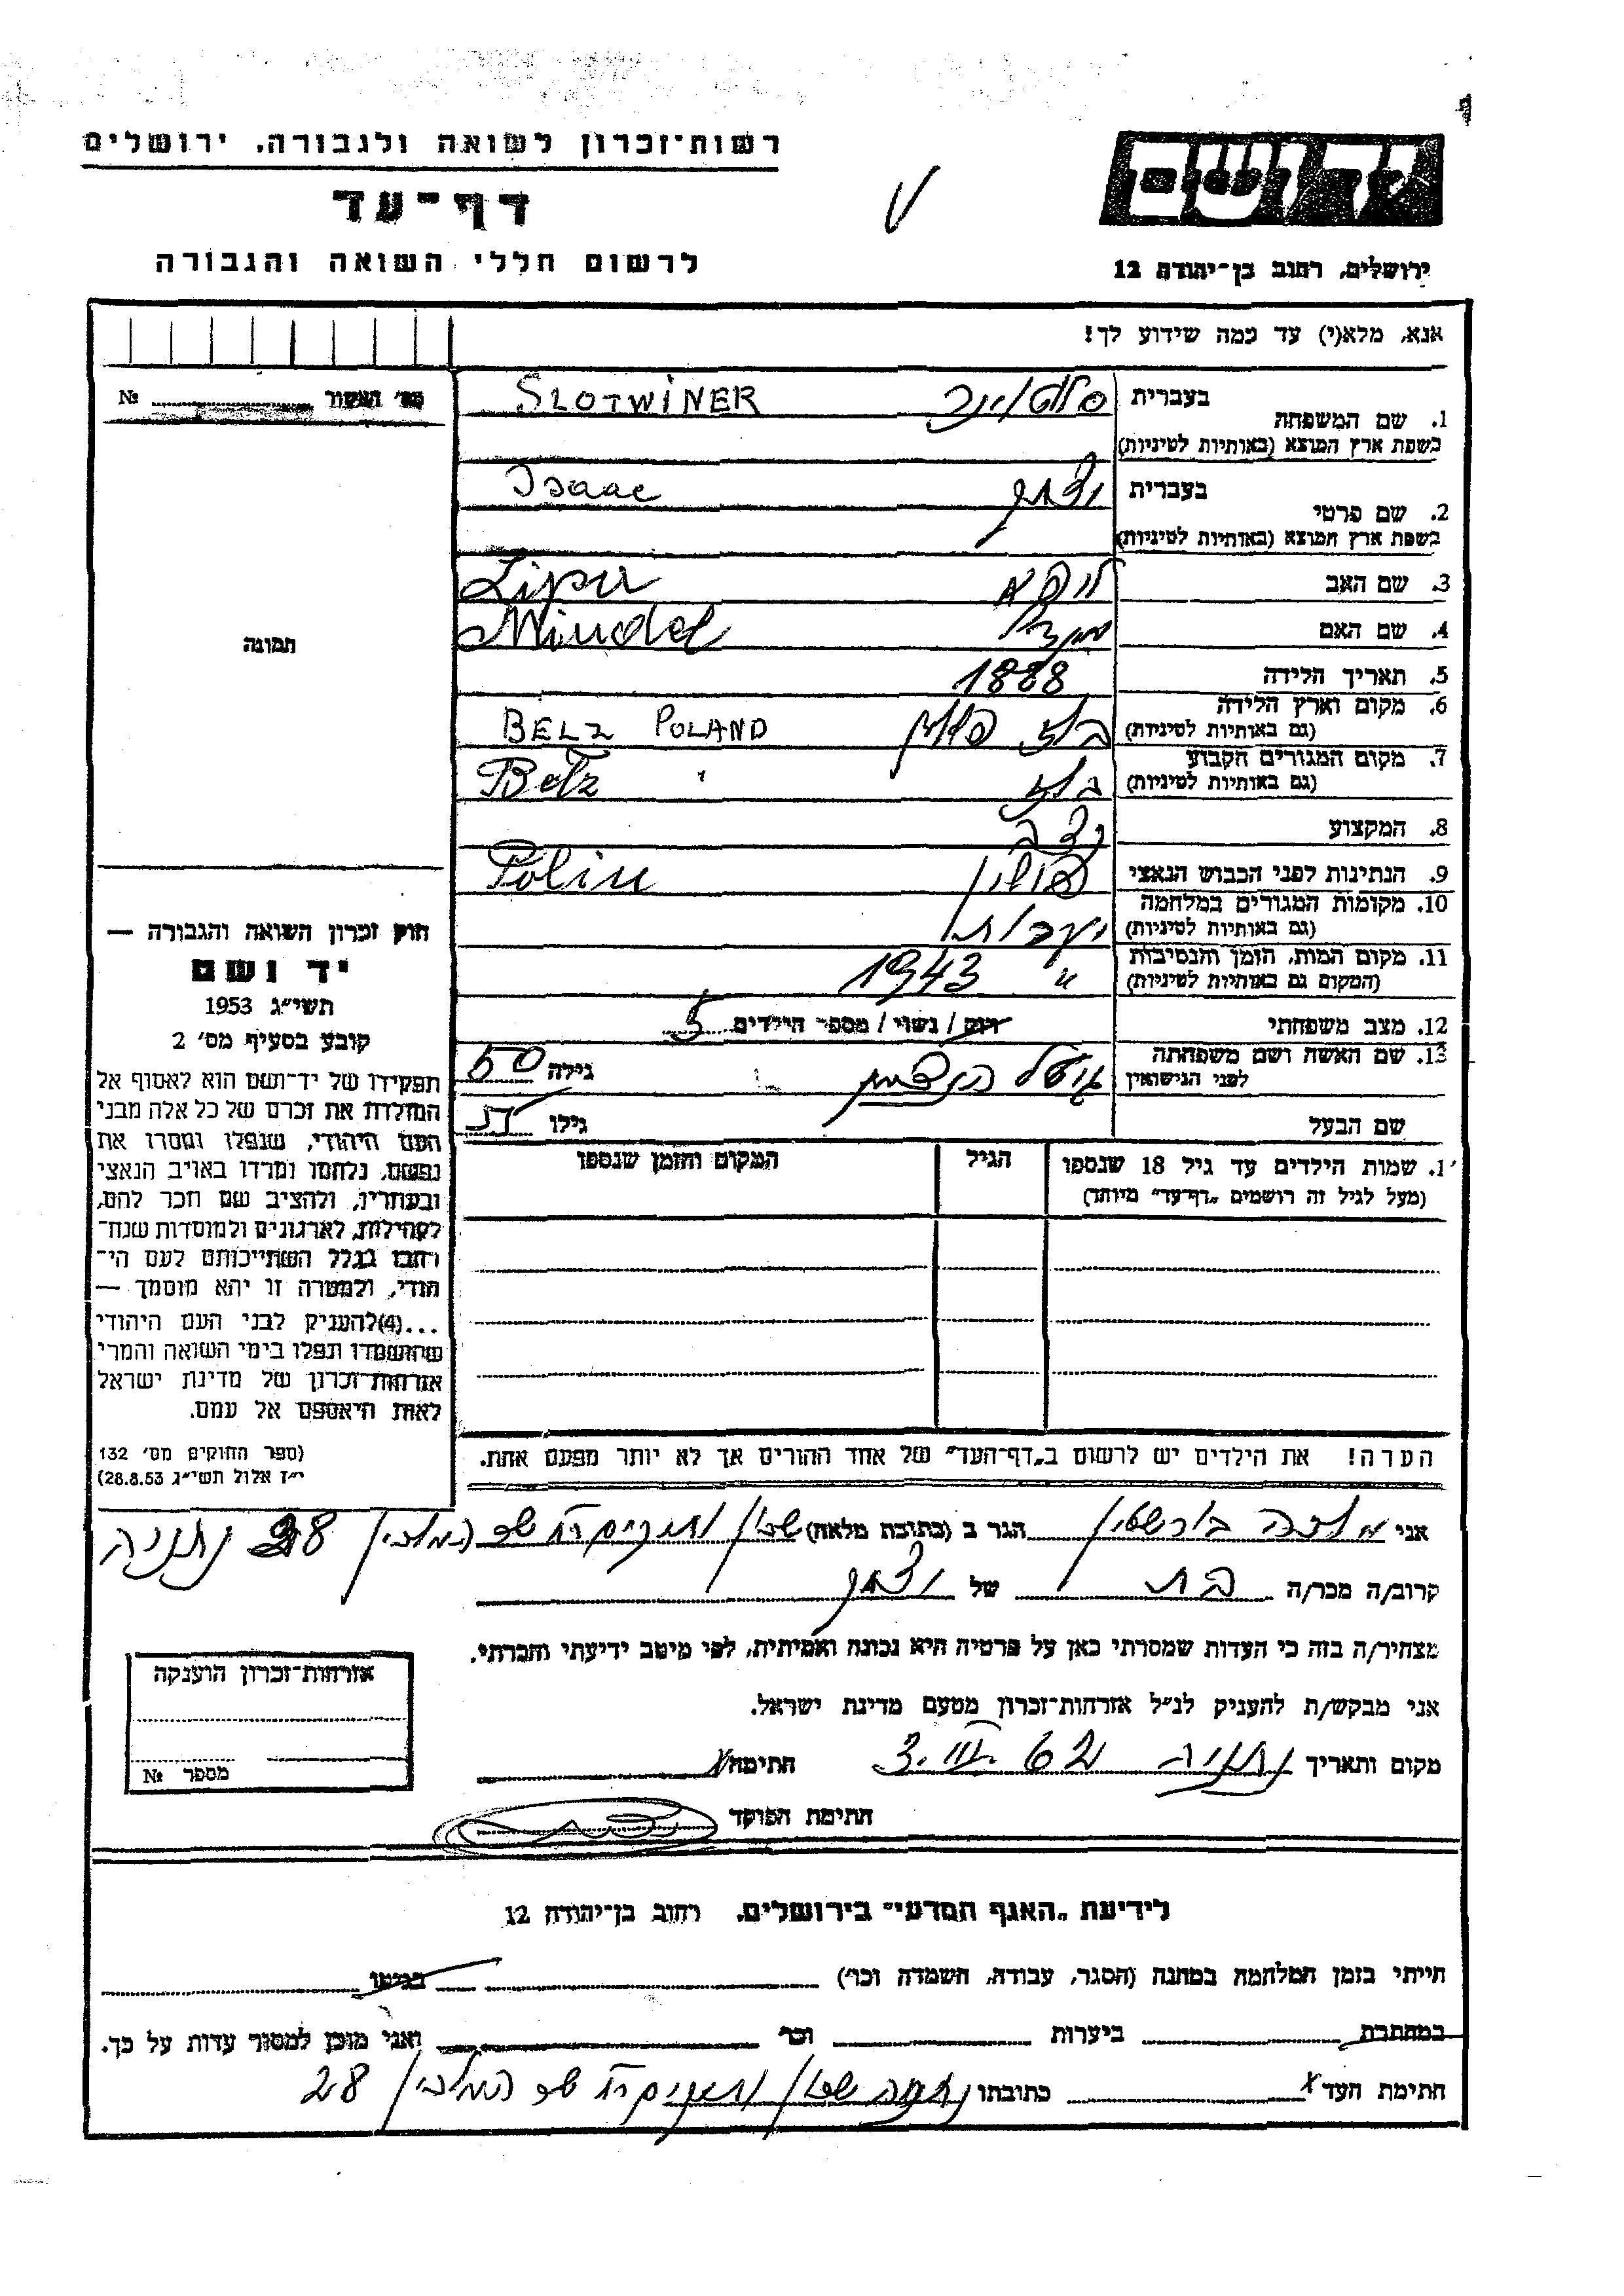 רשות־זכרון לשואה ולגבורה, ירושלים
דף־עד
לרשום חללי השואה והגבורה
יד ושם
ירושלים, רחוב בן־יהודה 12
אנא, מלא(י) עד כמה שידוע לך!
מס' האשור № 
1. שם המשפחה בעברית סלוטוינר SLOTWINER
בשפת ארץ המוצא (באותיות לטיניות)
2. שם פרטי בעברית יצחק Isaac
בשפת ארץ המוצא (באותיות לטיניות)
3. שם האב ליפא Lipa
4. שם האם מינדל Mindel
5. תאריך הלידה 1888
6. מקום וארץ הלידה בלז פולין BELZ POLAND
(גם באותיות לטיניות)
7. מקום המגורים הקבוע בלז Belz "
(גם באותיות לטיניות)
8. המקצוע
9. הנתינות לפני הכבוש הנאצי פולין Polin
10. מקומות המגורים במלחמה
(גם באותיות לטיניות)
11. מקום המות, הזמן והנסיבות " 1943
(המקום גם באותיות לטיניות)
12. מצב משפחתי רווק / נשוי / מספר הילדים 5
13. שם האשה ושם משפחתה גילה 50
לפני הנישואין
שם הבעל גילו 55
תמונה
חוק זכרון השואה והגבורה —
יד ושם
תשי״ג 1953
קובע בסעיף מס' 2
תפקידו של יד־ושם הוא לאסוף אל
המולדת את זכרם של כל אלה מבני
העם היהודי, שנפלו ומסרו את
נפשם, נלחמו ומרדו באויב הנאצי
ובעוזריו, ולהציב שם וזכר להם,
לקהילות, לארגונים ולמוסדות שנח־
רבו בגלל השתייכותם לעם הי־
הודי, ולמטרה זו יהא מוסמך —
...(4) להעניק לבני העם היהודי
שהושמדו ונפלו בימי השואה והמרי
אזרחות־זכרון של מדינת ישראל
לאות היאספם אל עמם.
(ספר החוקים מס' 132
י״ז אלול תשי״ג 28.8.53)
1. שמות הילדים עד גיל 18 שנספו הגיל המקום והזמן שנספו
(מעל לגיל זה רושמים „דף־עד" מיוחד)
הערה! את הילדים יש לרשום ב„דף־העד" של אחד ההורים אך לא יותר מפעם אחת.
אני בורשטין הגר ב (כתובת מלאה) שכון ותיקים רח' שד' המלכין 28 נתניה
קרוב/ה מכר/ה בת של יצחק
מצהיר/ה בזה כי העדות שמסרתי כאן על פרטיה היא נכונה ואמיתית, לפי מיטב ידיעתי והכרתי.
אני מבקש/ת להעניק לנ״ל אזרחות־זכרון מטעם מדינת ישראל.
מקום ותאריך נתניה חתימה X
חתימת הפוקד
אזרחות־זכרון הוענקה
מספר №
לידיעת „האגף המדעי" בירושלים, רחוב בן־יהודה 12
הייתי בזמן המלחמה במחנה (הסגר, עבודה, השמדה וכו') בגיטו
במחתרת ביערות וכו' ואני מוכן למסור עדות על כך.
חתימת העד X כתובתו נתניה שכון ותיקים רח' שד' המלכין 28